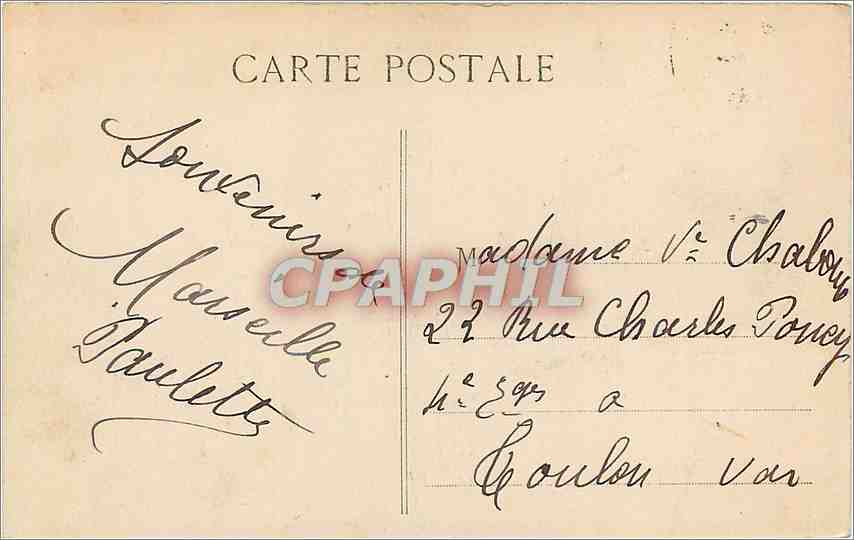 CARTE POSTALE
Souvenirs de
Marseille
Paulette
CPAPHIL
Madame Ve
22 Rue Charles Poncy
4e Ege a
Toulon Var